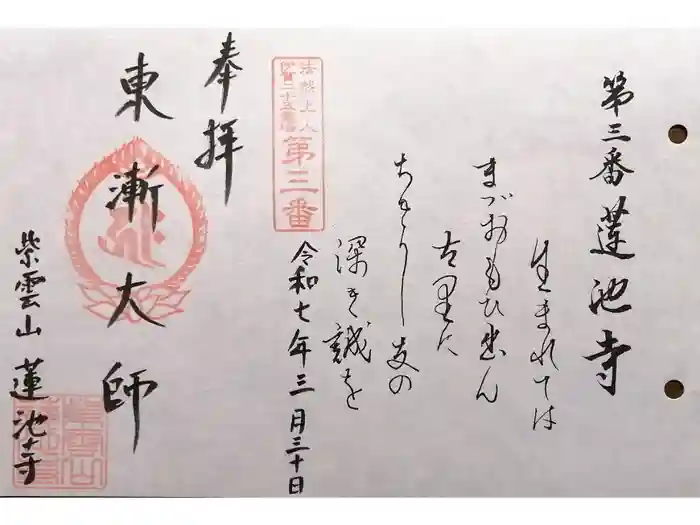 第三番 蓮池寺
生まれては
まづおもひ出ん
古里に
ちきりし友の
深き誠を
法然上人
伊賀二十五霊場
第三番
令和七年三月三十日
奉拝
東漸大師
紫雲山 蓮池寺